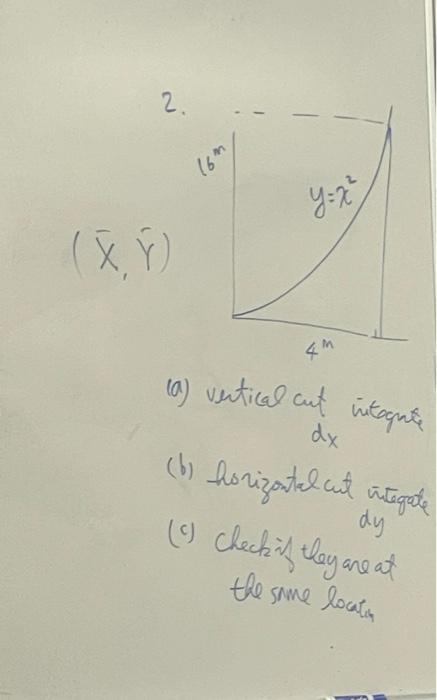 2.
16 m
y=x²
(X̄, Ȳ)
4 m
(a) vertical cut integrate
dx
(b) horizontal cut integate
dy
(c) check if they are at
the same location